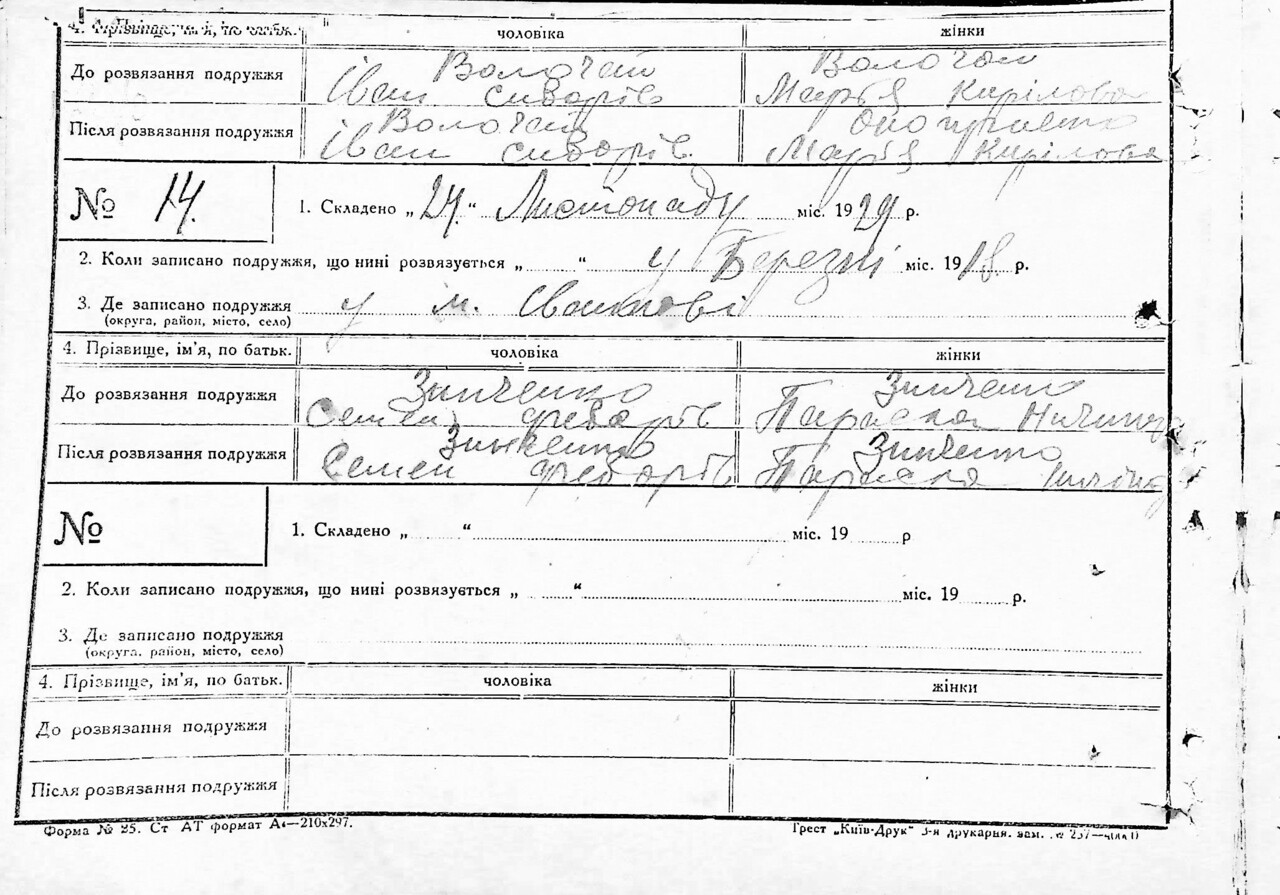 4. Прізвище, ім'я, по батьк. чоловіка жінки
До розвязання подружжя Волочай Волочай
Іван Марʼя Кирілова
Після розвязання подружжя Волочай
Іван Марʼя Кирілова
№ 14. 1. Складено „24“ Листопаду міс. 1929 р.
2. Коли записано подружжя, що нині розвязується „ “ у Березні міс. 1918 р.
3. Де записано подружжя у м. Сватові
(округа, район, місто, село)
4. Прізвище, ім'я, по батьк. чоловіка жінки
До розвязання подружжя Зинченко Зинченко
Семен Федорів Параска
Після розвязання подружжя Зинченко Зинченко
Семен Федорів Параска
№ 1. Складено „ “ міс. 19 р
2. Коли записано подружжя, що нині розвязується „ “ міс. 19 р.
3. Де записано подружжя
(округа, район, місто, село)
4. Прізвище, ім'я, по батьк. чоловіка жінки
До розвязання подружжя
Після розвязання подружжя
Форма № 25. Ст АТ формат А4—210х297. Трест „Київ-Друк“ 3-я друкарня. зам. №